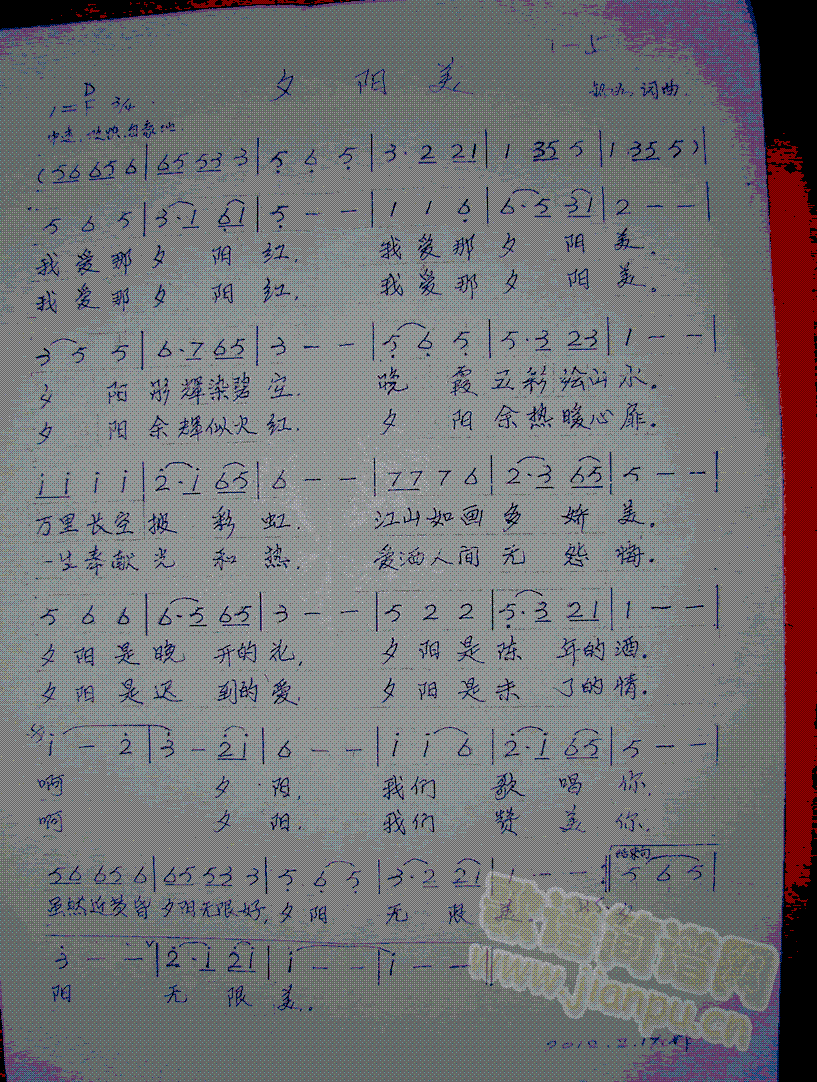 1-5
夕 阳 美
词曲.
D
1=F 3/4
(56 656 | 65 533 | 5 6 5 | 3·2 21 | 1 35 5 | 1 35 5)|
5 6 5 | 3·1 61 | 5 - - | 1 1 6 | 6·5 31 | 2 - - |
我爱那夕 阳 红. 我爱那夕 阳 美.
我爱那夕 阳 红. 我爱那夕 阳 美。
3 5 5 | 6·7 65 | 3 - - | 5 6 5 | 5·3 23 | 1 - - |
夕 阳彤辉染碧空. 晚 霞五彩绘山水.
夕 阳余辉似火红. 夕 阳余热暖心扉.
i i i i | 2·i 65 | 6 - - | 77 7 6 | 2·3 65 | 5 - - |
万里长空披 彩 虹. 江山如画多 娇 美.
一生奉献光 和 热. 爱洒人间无 怨 悔.
5 6 6 | 6·5 65 | 3 - - | 5 2 2 | 5·3 21 | 1 - - |
夕阳是晚 开的花, 夕阳是陈 年的酒.
夕阳是迟 到的爱, 夕阳是未 了的情.
i - 2 | 3 - 2i | 6 - - | i i 6 | 2·i 65 | 5 - - |
啊 夕 阳, 我们 歌 唱 你.
啊 夕 阳. 我们 赞 美 你.
56 656 | 65 533 | 5 6 5 | 3·2 21 | 1 - - :| 结束句 5 6 5 |
虽然近黄昏 夕阳无限好, 夕 阳 无 限 美. 夕
3 - - | 2·i 2i | i - - | i - - |
阳 无 限 美.
歌谱简谱网
www.jianpu.cn
2012.2.17